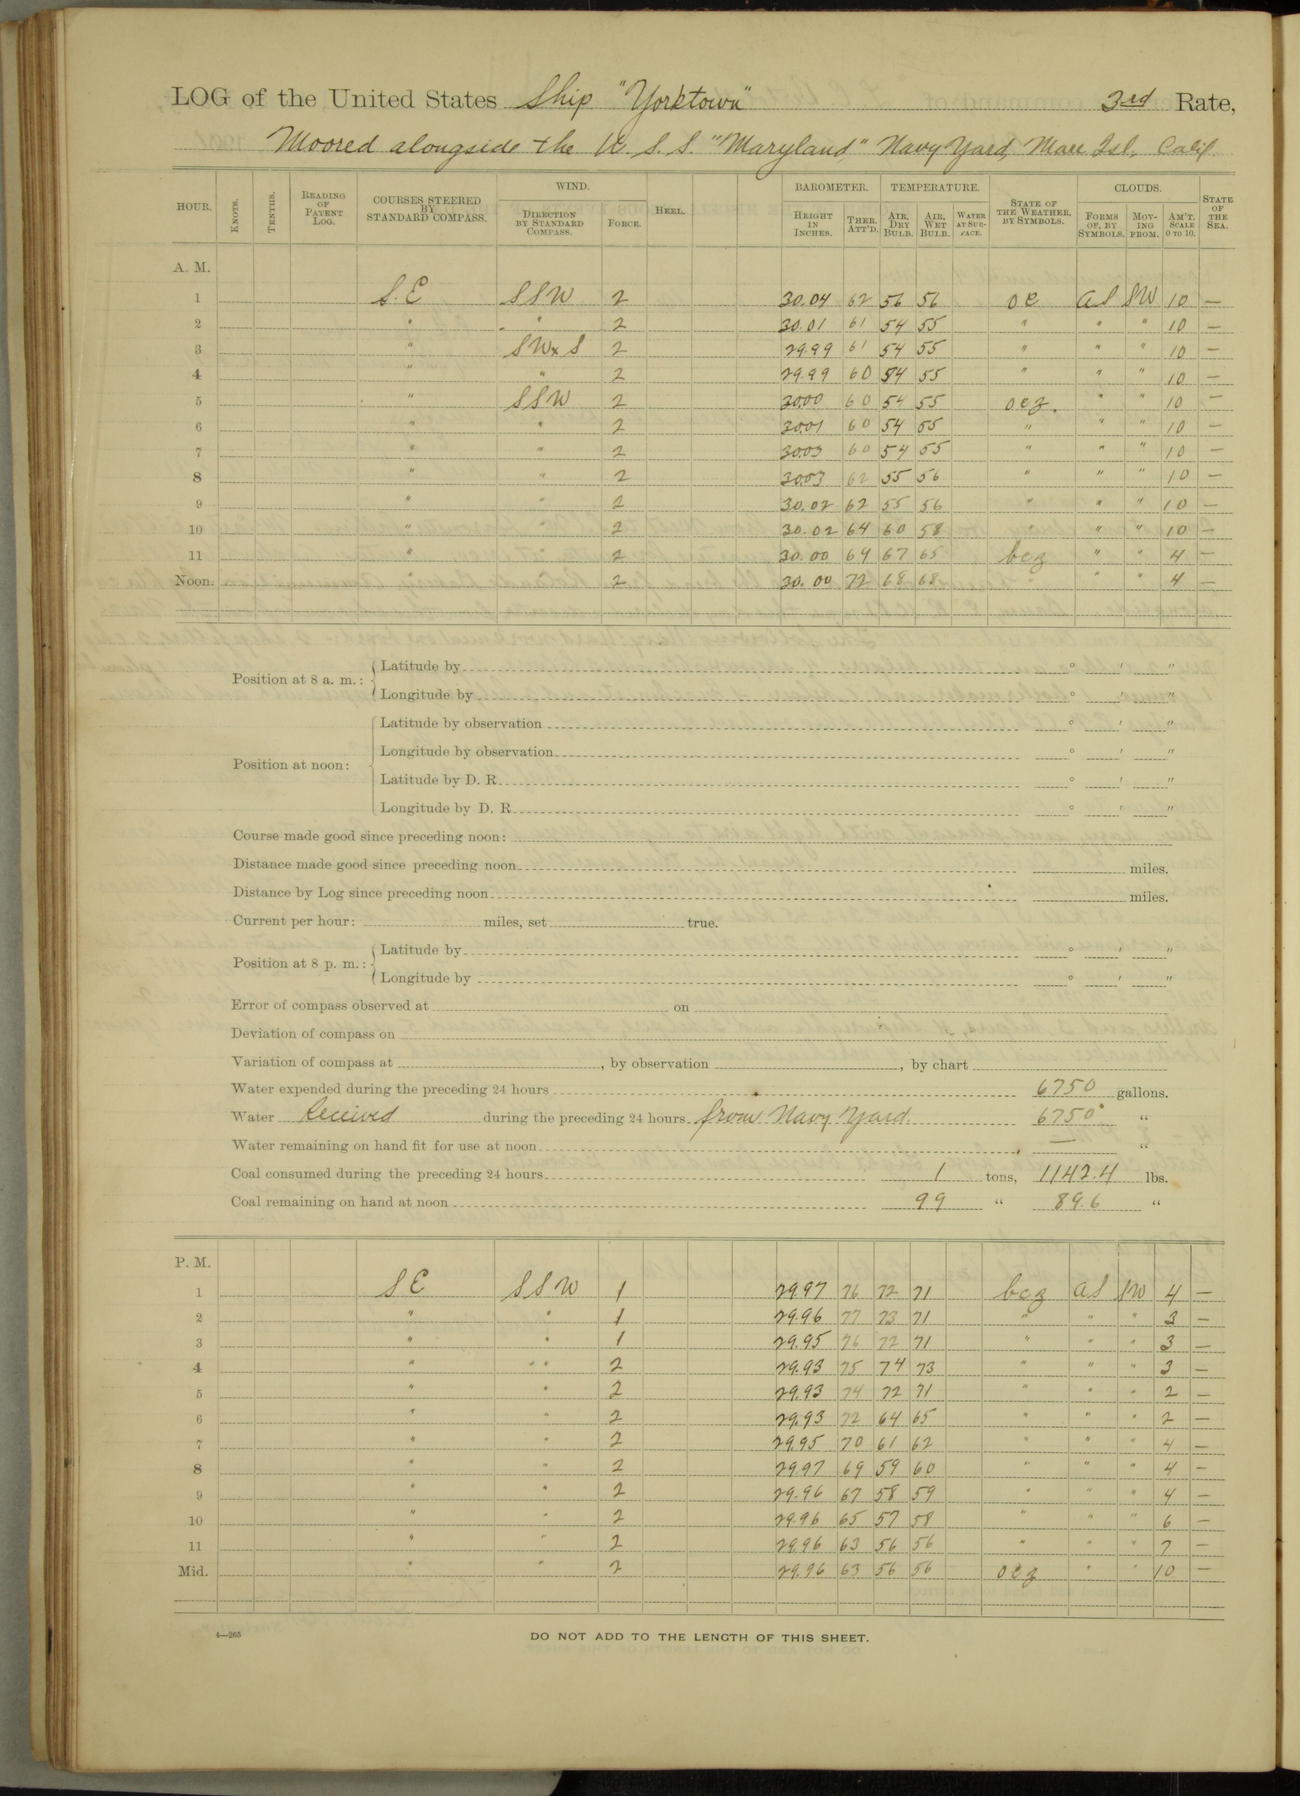 LOG of the United States Ship "Yorktown" 3rd Rate,
Moored alongside the U. S. S. "Maryland" Navy Yard, Mare Isl. Calif.
HOUR. KNOTS. TENTHS. READING OF PATENT LOG. COURSES STEERED BY STANDARD COMPASS. WIND. DIRECTION BY STANDARD COMPASS. FORCE. HEEL. BAROMETER. HEIGHT IN INCHES. THER. ATT'D. TEMPERATURE. AIR, DRY BULB. AIR, WET BULB. WATER AT SURFACE. STATE OF THE WEATHER, BY SYMBOLS. CLOUDS. FORMS OF, BY SYMBOLS. MOVING FROM. AM'T. SCALE 0 TO 10. STATE OF THE SEA.
A. M.
1 S.E SSW 2 30.04 62 56 56 oc as SW 10 —
2 " " 2 30.01 61 54 55 " " " 10 —
3 " SWxS 2 29.99 61 54 55 " " " 10 —
4 " " 2 29.99 60 54 55 " " " 10 —
5 " SSW 2 30.00 60 54 55 ocz. " " 10 —
6 " " 2 30.01 60 54 55 " " " 10 —
7 " " 2 30.03 60 54 55 " " " 10 —
8 " " 2 30.03 62 55 56 " " " 10 —
9 " " 2 30.02 62 55 56 " " " 10 —
10 " " 2 30.02 64 60 58 " " " 10 —
11 " " 2 30.00 69 67 65 bcz " " 4 —
Noon. " " 2 30.00 72 68 68 " " " 4 —
Position at 8 a. m.: Latitude by ° ′ ″
Longitude by ° ′ ″
Position at noon: Latitude by observation ° ′ ″
Longitude by observation ° ′ ″
Latitude by D. R. ° ′ ″
Longitude by D. R. ° ′ ″
Course made good since preceding noon:
Distance made good since preceding noon miles.
Distance by Log since preceding noon miles.
Current per hour: miles, set true.
Position at 8 p. m.: Latitude by ° ′ ″
Longitude by ° ′ ″
Error of compass observed at on
Deviation of compass on
Variation of compass at , by observation , by chart
Water expended during the preceding 24 hours 6750 gallons.
Water Received during the preceding 24 hours from Navy Yard. 6750 "
Water remaining on hand fit for use at noon — "
Coal consumed during the preceding 24 hours 1 tons, 1142.4 lbs.
Coal remaining on hand at noon 99 " 89.6 "
P. M.
1 SE SSW 1 29.97 76 72 71 bcz as SW 4 —
2 " " 1 29.96 77 73 71 " " " 3 —
3 " " 1 29.95 76 72 71 " " " 3 —
4 " " " 2 29.93 75 74 73 " " " 3 —
5 " " 2 29.93 74 72 71 " " " 2 —
6 " " 2 29.93 72 64 65 " " " 2 —
7 " " 2 29.95 70 61 62 " " " 4 —
8 " " 2 29.97 69 59 60 " " " 4 —
9 " " 2 29.96 67 58 59 " " " 4 —
10 " " 2 29.96 65 57 58 " " " 6 —
11 " " 2 29.96 63 56 56 " " " 7 —
Mid. " " 2 29.96 63 56 56 ocz " " 10 —
4—265
DO NOT ADD TO THE LENGTH OF THIS SHEET.